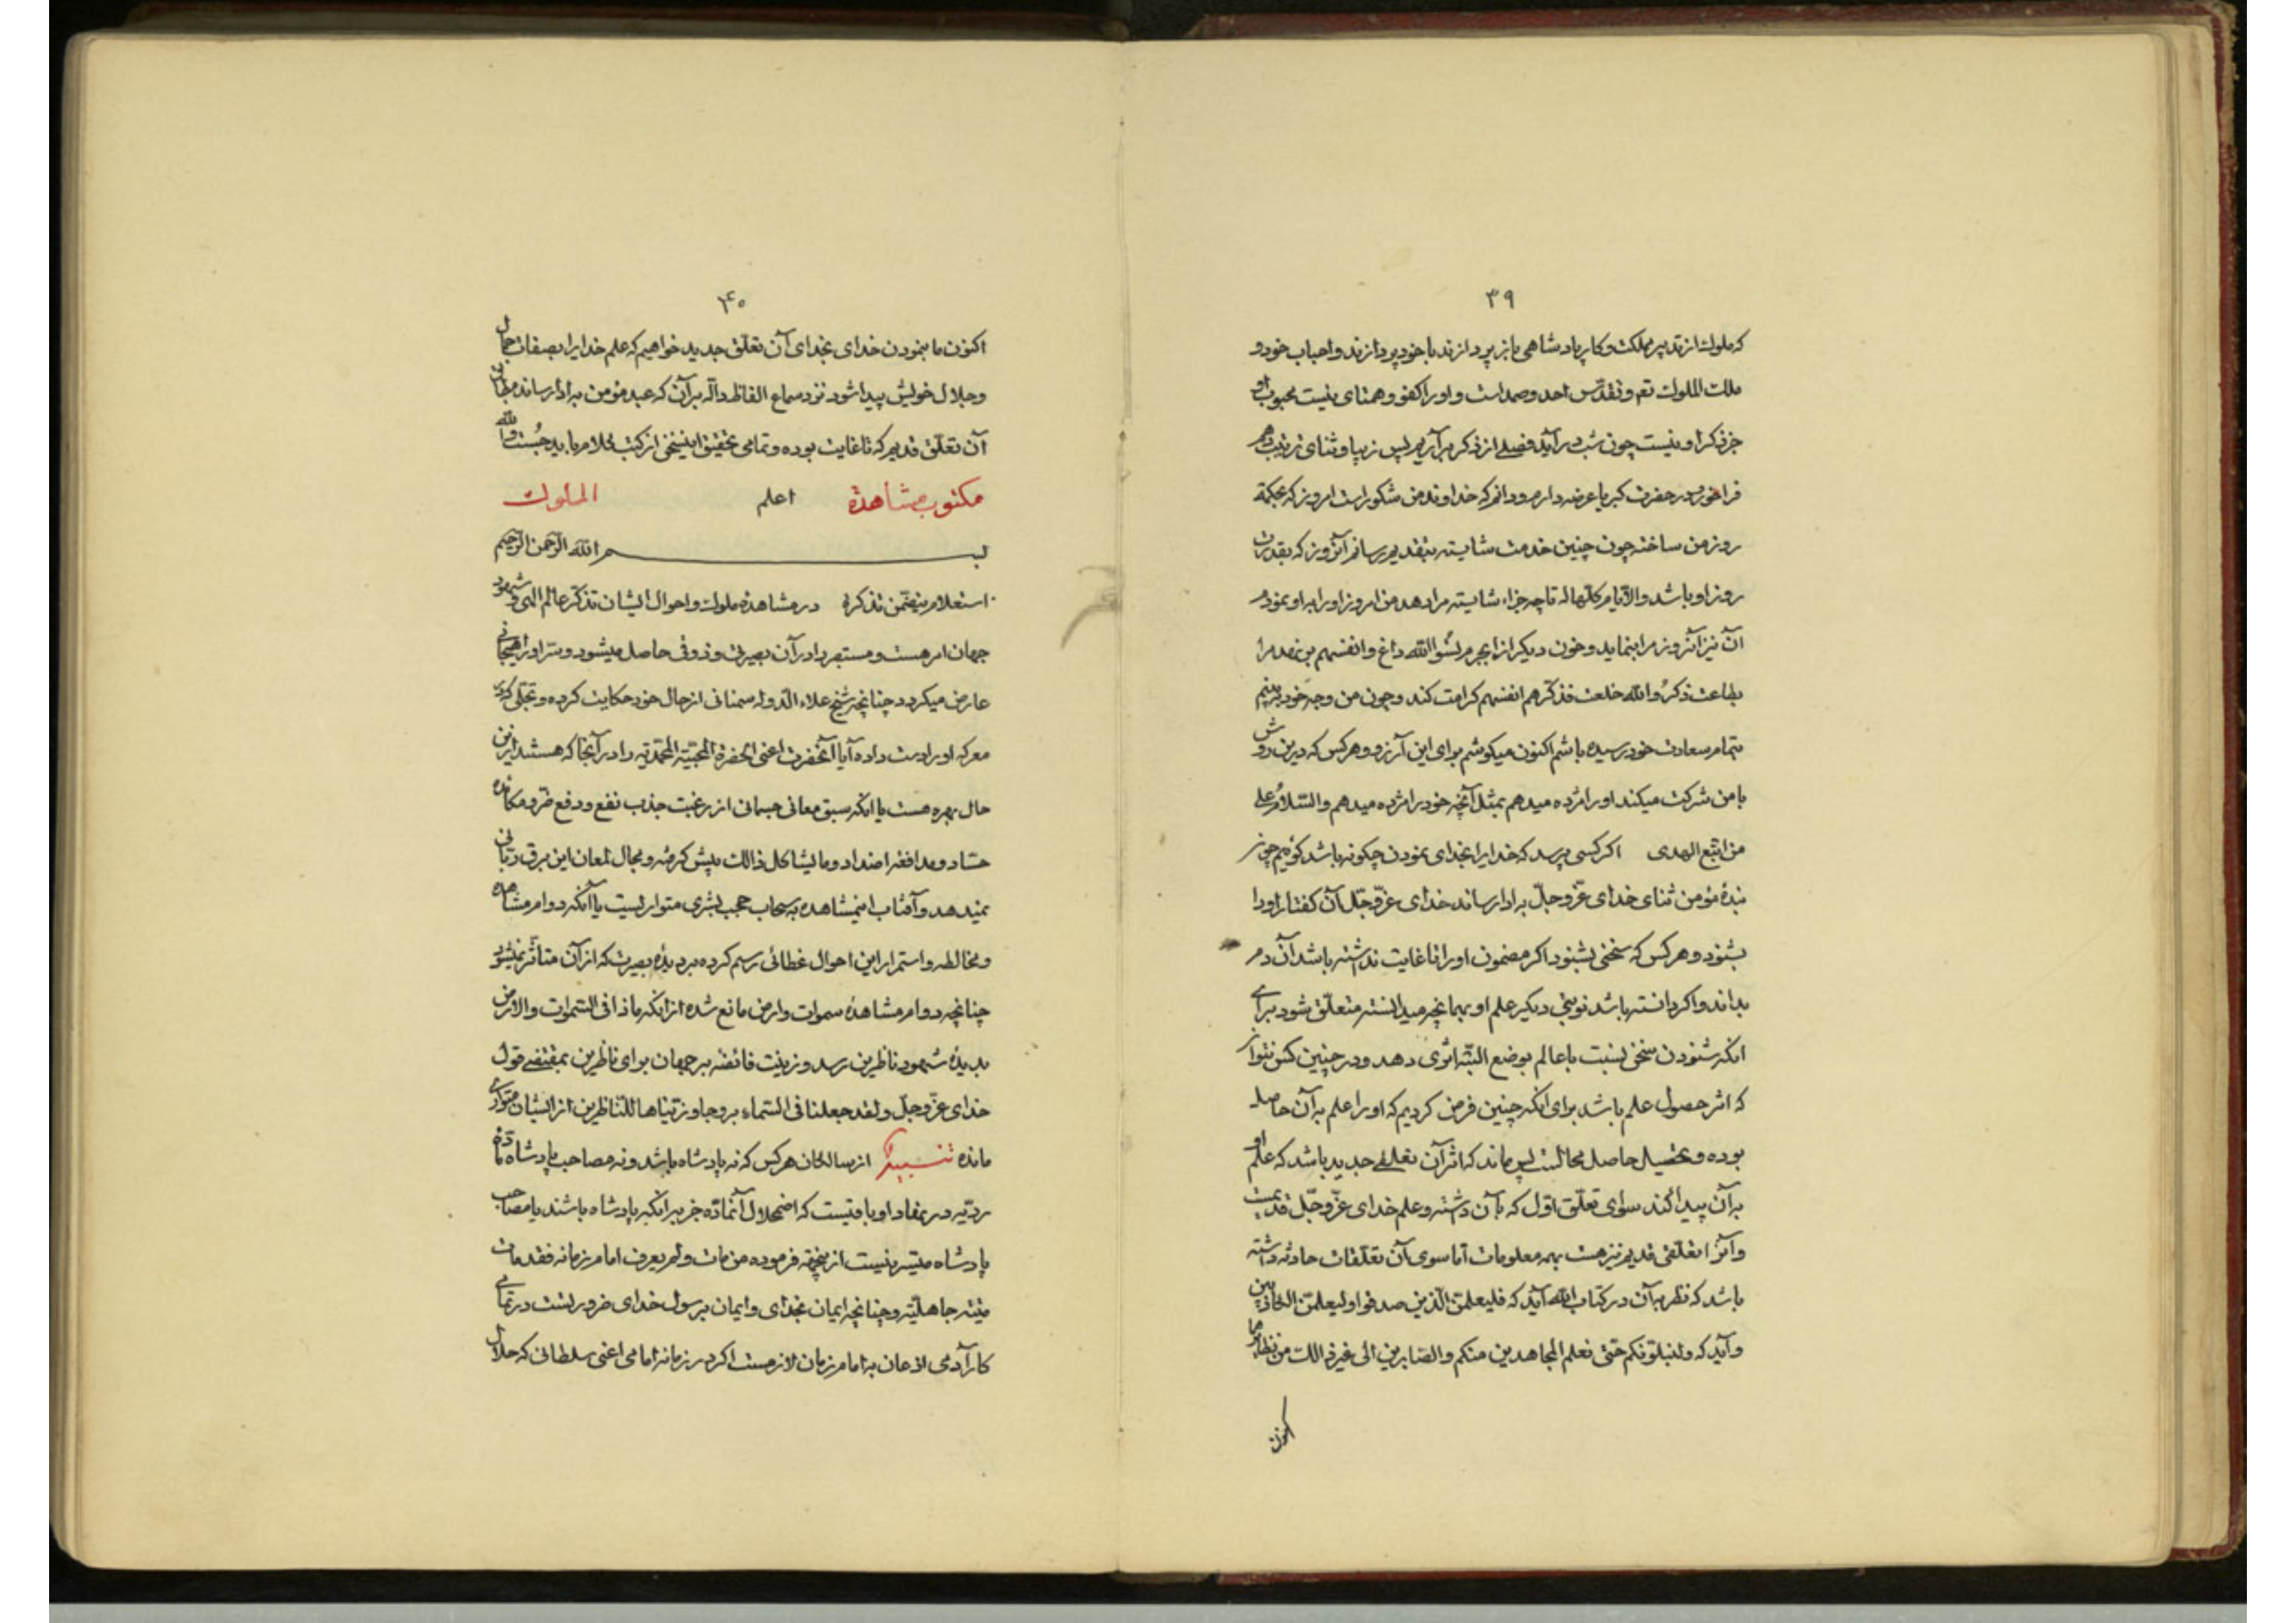 ۳۹
که ملوک از تدبیر مملکت و کار پادشاهی باز پردازند با خود پردازند و احباب خود و
ملک الملوک تع و تقدس احد و صمد است و او را کفو و همتای نیست محبوب او
جز ذکر او نیست چون شب در آید فصلی از ذکر برآریم پس زیبا و ثنای
حضرت کبریا عرضه دارم و دانم که خداوند من شکور است امروز که بحکمة
روز من ساخته چون چنین خدمت شایسته بتقدیم رسانم آنروز که بقدرت
روز او باشد والایام کلها له تا چه جزاء شایسته مرا دهد من امروز او را به او نمودم
آن نیز آنروز مرا بنماید و خون دیگر از ایجرم نسوا الله داغ و انفسهم بر نهد مرا
بطاعت ذکروا الله خلعت فذکرهم انفسهم کرامت کند و چون من وجه خود ببینم
بتمام سعادت خود رسیده باشم اکنون میکوشم برای این آرزو و هرکس که درین روش
با من شرکت میکند او را مژده میدهم بمثل آنچه خود را مژده میدهم والسّلام علی
من اتبع الهدی اکر کسی پرسد که خدا را بخدای نمودن چکونه باشد کوئیم چون
بندهٔ مؤمن ثنای خدای عزّ و جلّ به ادا رساند خدای عزّ و جلّ آن کفتار او را
بشنود و هر کس که سخنی بشنود اکر مضمون او را تا غایت ندانسته باشد آن دم
بداند و اکر دانسته باشد نوبتی دیکر علم او بهمانچه میدانسته متعلّق شود برای
آنکه شنودن سخن نسبت با عالم بوضع البتّه اثری دهد و در چنین کس نتواند
که اثر حصول علم باشد برای آنکه چنین فرض کردیم که او را علم به آن حاصل
بوده و تحصیل حاصل محالست پس ماند که اثر آن تعلقی جدید باشد که علم او
به آن پیدا کند سوای تعلّق اوّل که با آن داشته و علم خدای عزّ و جلّ قدیمست
و آنرا تعلّقی قدیم نیز هست بهمه معلومات امّا سوی آن تعلّقات حادثه داشته
باشد که نظر به آن در کتاب الله آید که فلیعلمنّ الّذین صدقوا و لیعلمنّ الکاذبین
و آید که ولنبلونّکم حتّی نعلم المجاهدین منکم والصّابرین الی غیر ذالک من نظایرها
اکنون
۴۰
اکنون ما بنمودن خدای بخدای آن تعلّق جدید خواهیم که علم خدا را بصفات جمال
و جلال خویش پیدا شود نزد سماع الفاظ دالّه بر آن که عبد مؤمن به ادا رساند
آن تعلّق قدیم که تا غایت بوده و تمامی تحقیق اینسخن از کتب کلام باید جُست والله
مکتوب مشاهدة اعلم الملوک
بسم الله الرّحمن الرّحیم
استعلام متضمّن تذکری در مشاهدهٔ ملوک و احوال ایشان تذکّر عالم الهی و شهود
جهان امر هست و مستبصر را در آن بصیرتی و ذوقی حاصل میشود و سرّ او را هیجانی
عارض میکردد چنانچه شیخ علاء الدّوله سمنانی از حال خود حکایت کرده و تجلّی که در
معرکه او را دست داده آیا آنحضرت اعنی الحضرة المحبّیّة المحمّدیّه را در آنجا که هستند ازین
حال بهره هست یا آنکه سبق معانی جسمانی از رغبت جذب نفع و دفع ضرّ و مکائده
حسّاد و مدافعه اضداد و ما یشاکل ذالک پیش کرفته و مجال لمعان این برق ربّانی
نمیدهد و آفتاب اینمشاهده به سحاب حجب بشری متواریست یا آنکه دوام مشاهده
و مخالطه و استمرار این احوال غطائی رسم کرده بر دیدهٔ بصیرت که از آن متأثّر نمیشود
چنانچه دوام مشاهدهٔ سموات و ارض مانع شده از آنکه ماذا فی السّموات والارض
بدیدهٔ شهود ناظرین رسد و زینت فائضه بر جهان برای ناظرین بمقتضی قول
خدای عزّ و جلّ ولقد جعلنا فی السّماء بروجا و زیّنّاها للنّاظرین از ایشان متواری
مانده تنبیه از سالکان هر کس که نه پادشاه باشد و نه مصاحب پادشاه مادّهٔ
ردیّه در نهاد او باقیست که اضمحلال آنمادّه جز بر آنکه پادشاه باشند یا مصاحب
پادشاه متیسّر نیست از نیجهة فرموده من مات و لم یعرف امام زمانه فقد مات
میتة جاهلیّة و چنانچه ایمان بخدای و ایمان برسول خدای ضروریست در تمامی
کار آدمی اذعان به امام زمان لازمست اکر در زمانه امامی اعنی سلطانی که جلال